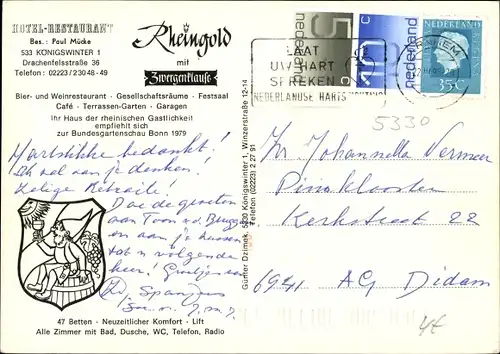 HOTEL-RESTAURANT
Bes.: Paul Mücke
533 KÖNIGSWINTER 1
Drachenfelsstraße 36
Telefon: 02223/23048-49
Rheingold
mit
Zwergenklause
Bier- und Weinrestaurant - Gesellschaftsräume - Festsaal
Café - Terrassen-Garten - Garagen
Ihr Haus der rheinischen Gastlichkeit
empfiehlt sich
zur Bundesgartenschau Bonn 1979
Hartelijke bedankt!
Ik zal aan je denken.
Zalige Retraite!
Doe de groeten
aan Toon
en aan je zussen
tot n volgende
keer!
47 Betten - Neuzeitlicher Komfort - Lift
Alle Zimmer mit Bad, Dusche, WC, Telefon, Radio
Günter Dzimek, 5330 Königswinter 1, Winzerstraße 12-14
Telefon (02223) 2 27 91
LAAT
UW HART
SPREKEN
NEDERLANDSE HARTSTICHTING
5c
nederland
10c
nederland
ARNHEM
NEDERLAND
35c
5330
Zr Johannella Vermeer
Pinoklooster
Kerkstraat 22
6941 AG Didam
4€